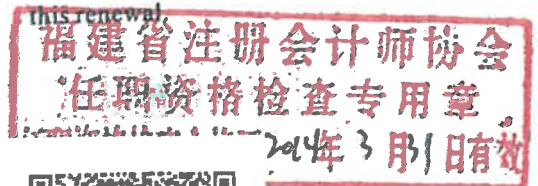 this renewal.
福建省注册会计师协会
任职资格检查专用章
2014年3月31日有效